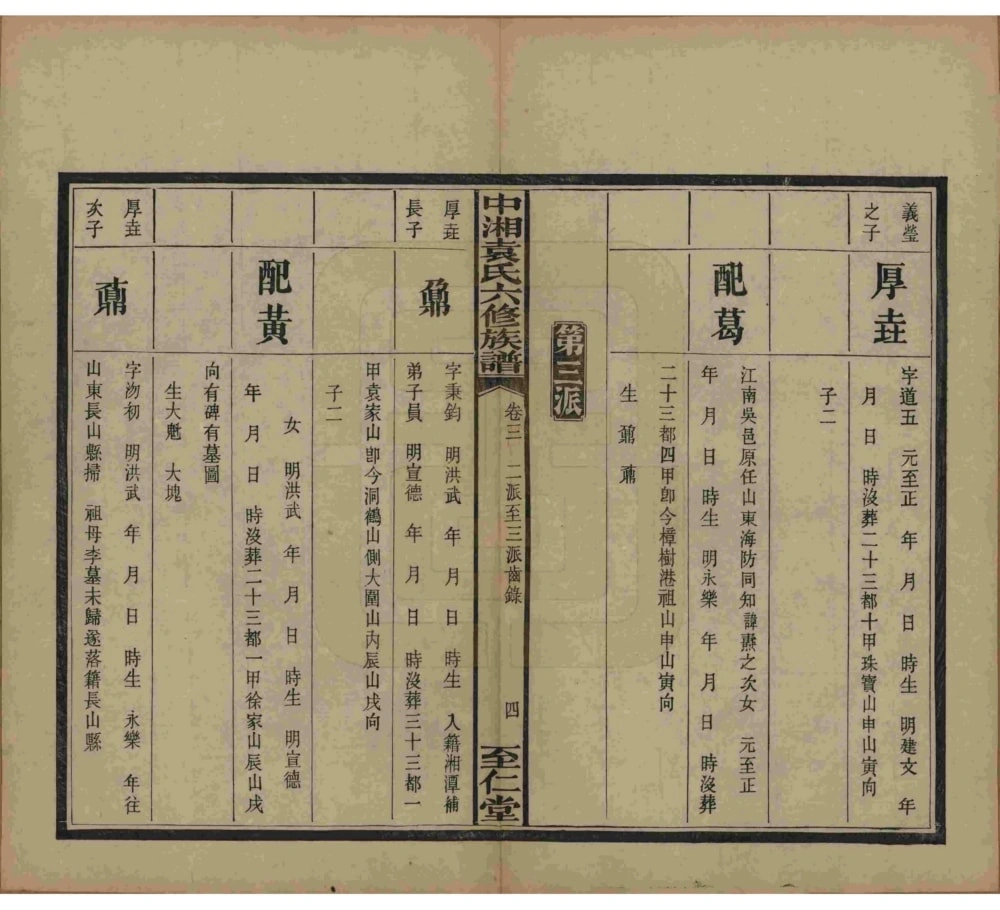 義瑩
之子
厚垚
字道五 元至正 年 月 日 時生 明建文 年
月 日 時沒葬二十三都十甲珠寶山申山寅向
子二
配葛
江南吳邑原任山東海防同知諱燾之次女 元至正
年 月 日 時生 明永樂 年 月 日 時沒葬
二十三都四甲卽今樟樹港祖山申山寅向
生 鼐 鼒
第三派
中湘袁氏六修族譜
卷三 二派至三派齒錄
四
至仁堂
厚垚
長子
鼐
字秉鈞 明洪武 年 月 日 時生 入籍湘潭補
弟子員 明宣德 年 月 日 時沒葬三十三都一
甲袁家山卽今洞鶴山側大圍山内辰山戌向
子二
配黃
女 明洪武 年 月 日 時生 明宣德
年 月 日 時沒葬二十三都一甲徐家山辰山戌
向有碑有墓圖
生大魁 大塊
厚垚
次子
鼒
字沕初 明洪武 年 月 日 時生 永樂 年往
山東長山縣掃 祖母李墓未歸遂落籍長山縣